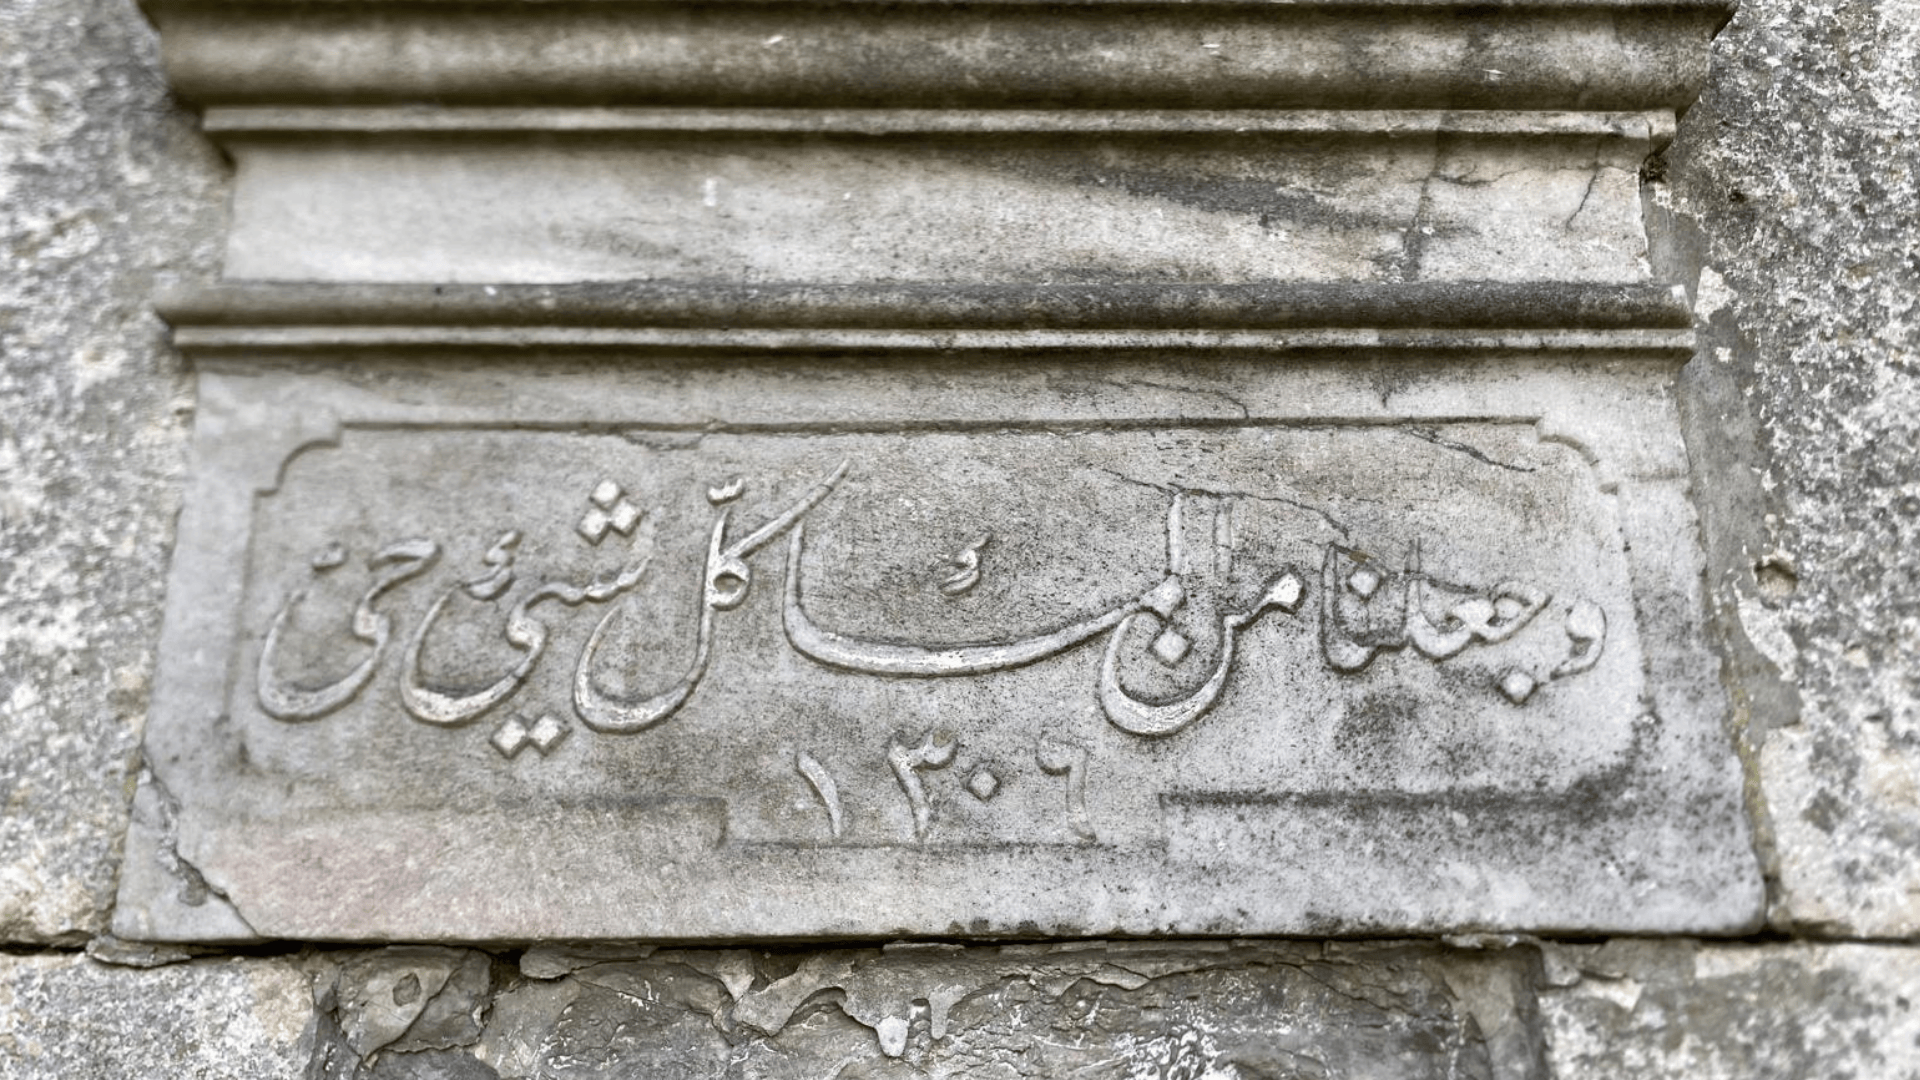 وجعلنا من الماء كلّ شيئ حي
١٣٠٦